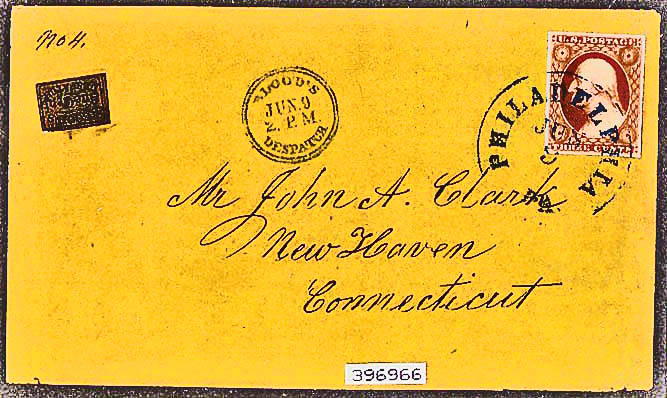 No 4.
BLOOD'S
JUN. 9
2. P.M.
DESPATCH
U.S. POSTAGE
THREE CENTS
PHILADELPHIA
Mr John A. Clark
New Haven
Connecticut
396966